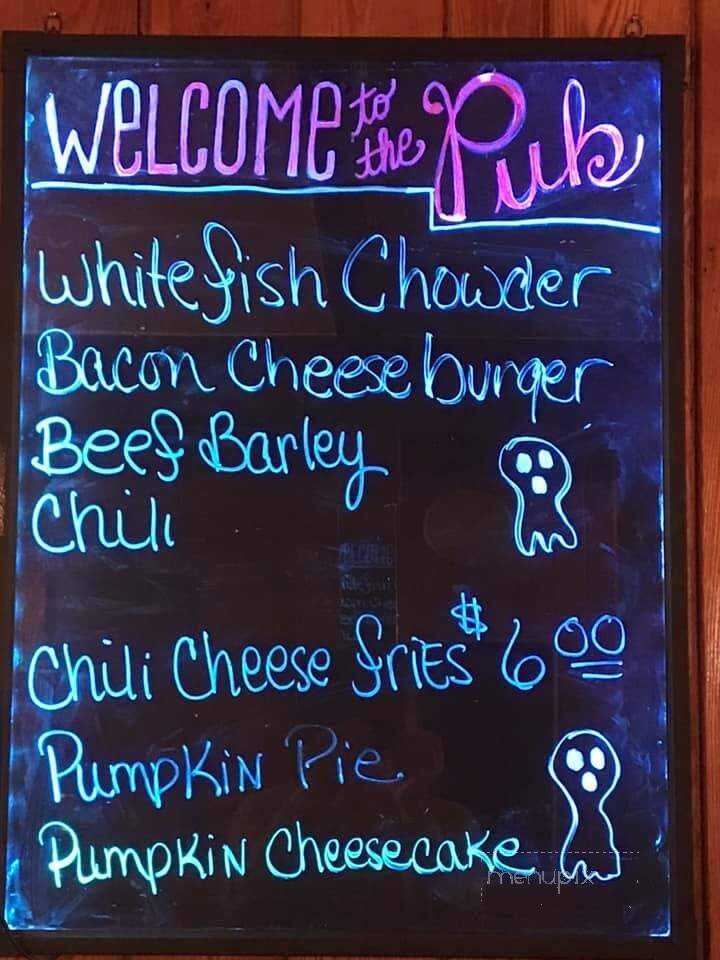 WELCOME to the Pub
Whitefish Chowder
Bacon Cheese burger
Beef Barley
Chili
Chili Cheese fries $6 00
Pumpkin Pie
Pumpkin Cheesecake
menupix